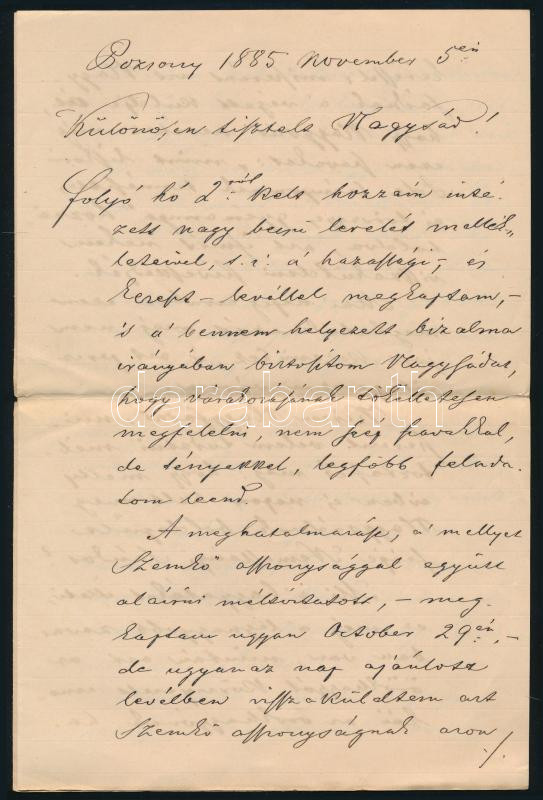 Pozsony 1885 November 5én
Különössen tisztelt Nagysád!
folyó hó 2ról kelt hozzám inté-
zett nagy becsü levelét mellék-
leteivel, s. i. a' házassági-, és
kereszt-levéllel megkaptam,-
is a' bennem helyezett bizalma
irányában biztosítom Nagysádat,
hogy várakozásának tökéletesen
megfelelni, nem szép szavakkal,
de tényekkel, legfőbb felada-
tom leend.
A meghatalmazást, a' mellyet
Szemkő asszonysággal együtt
aláirni méltóztatott, - meg-
kaptam ugyan October 29én,-
de ugyanaz nap ajánlott
levélben visszaküldtem azt
Szemkő asszonyságnak azon
./.
darabanth